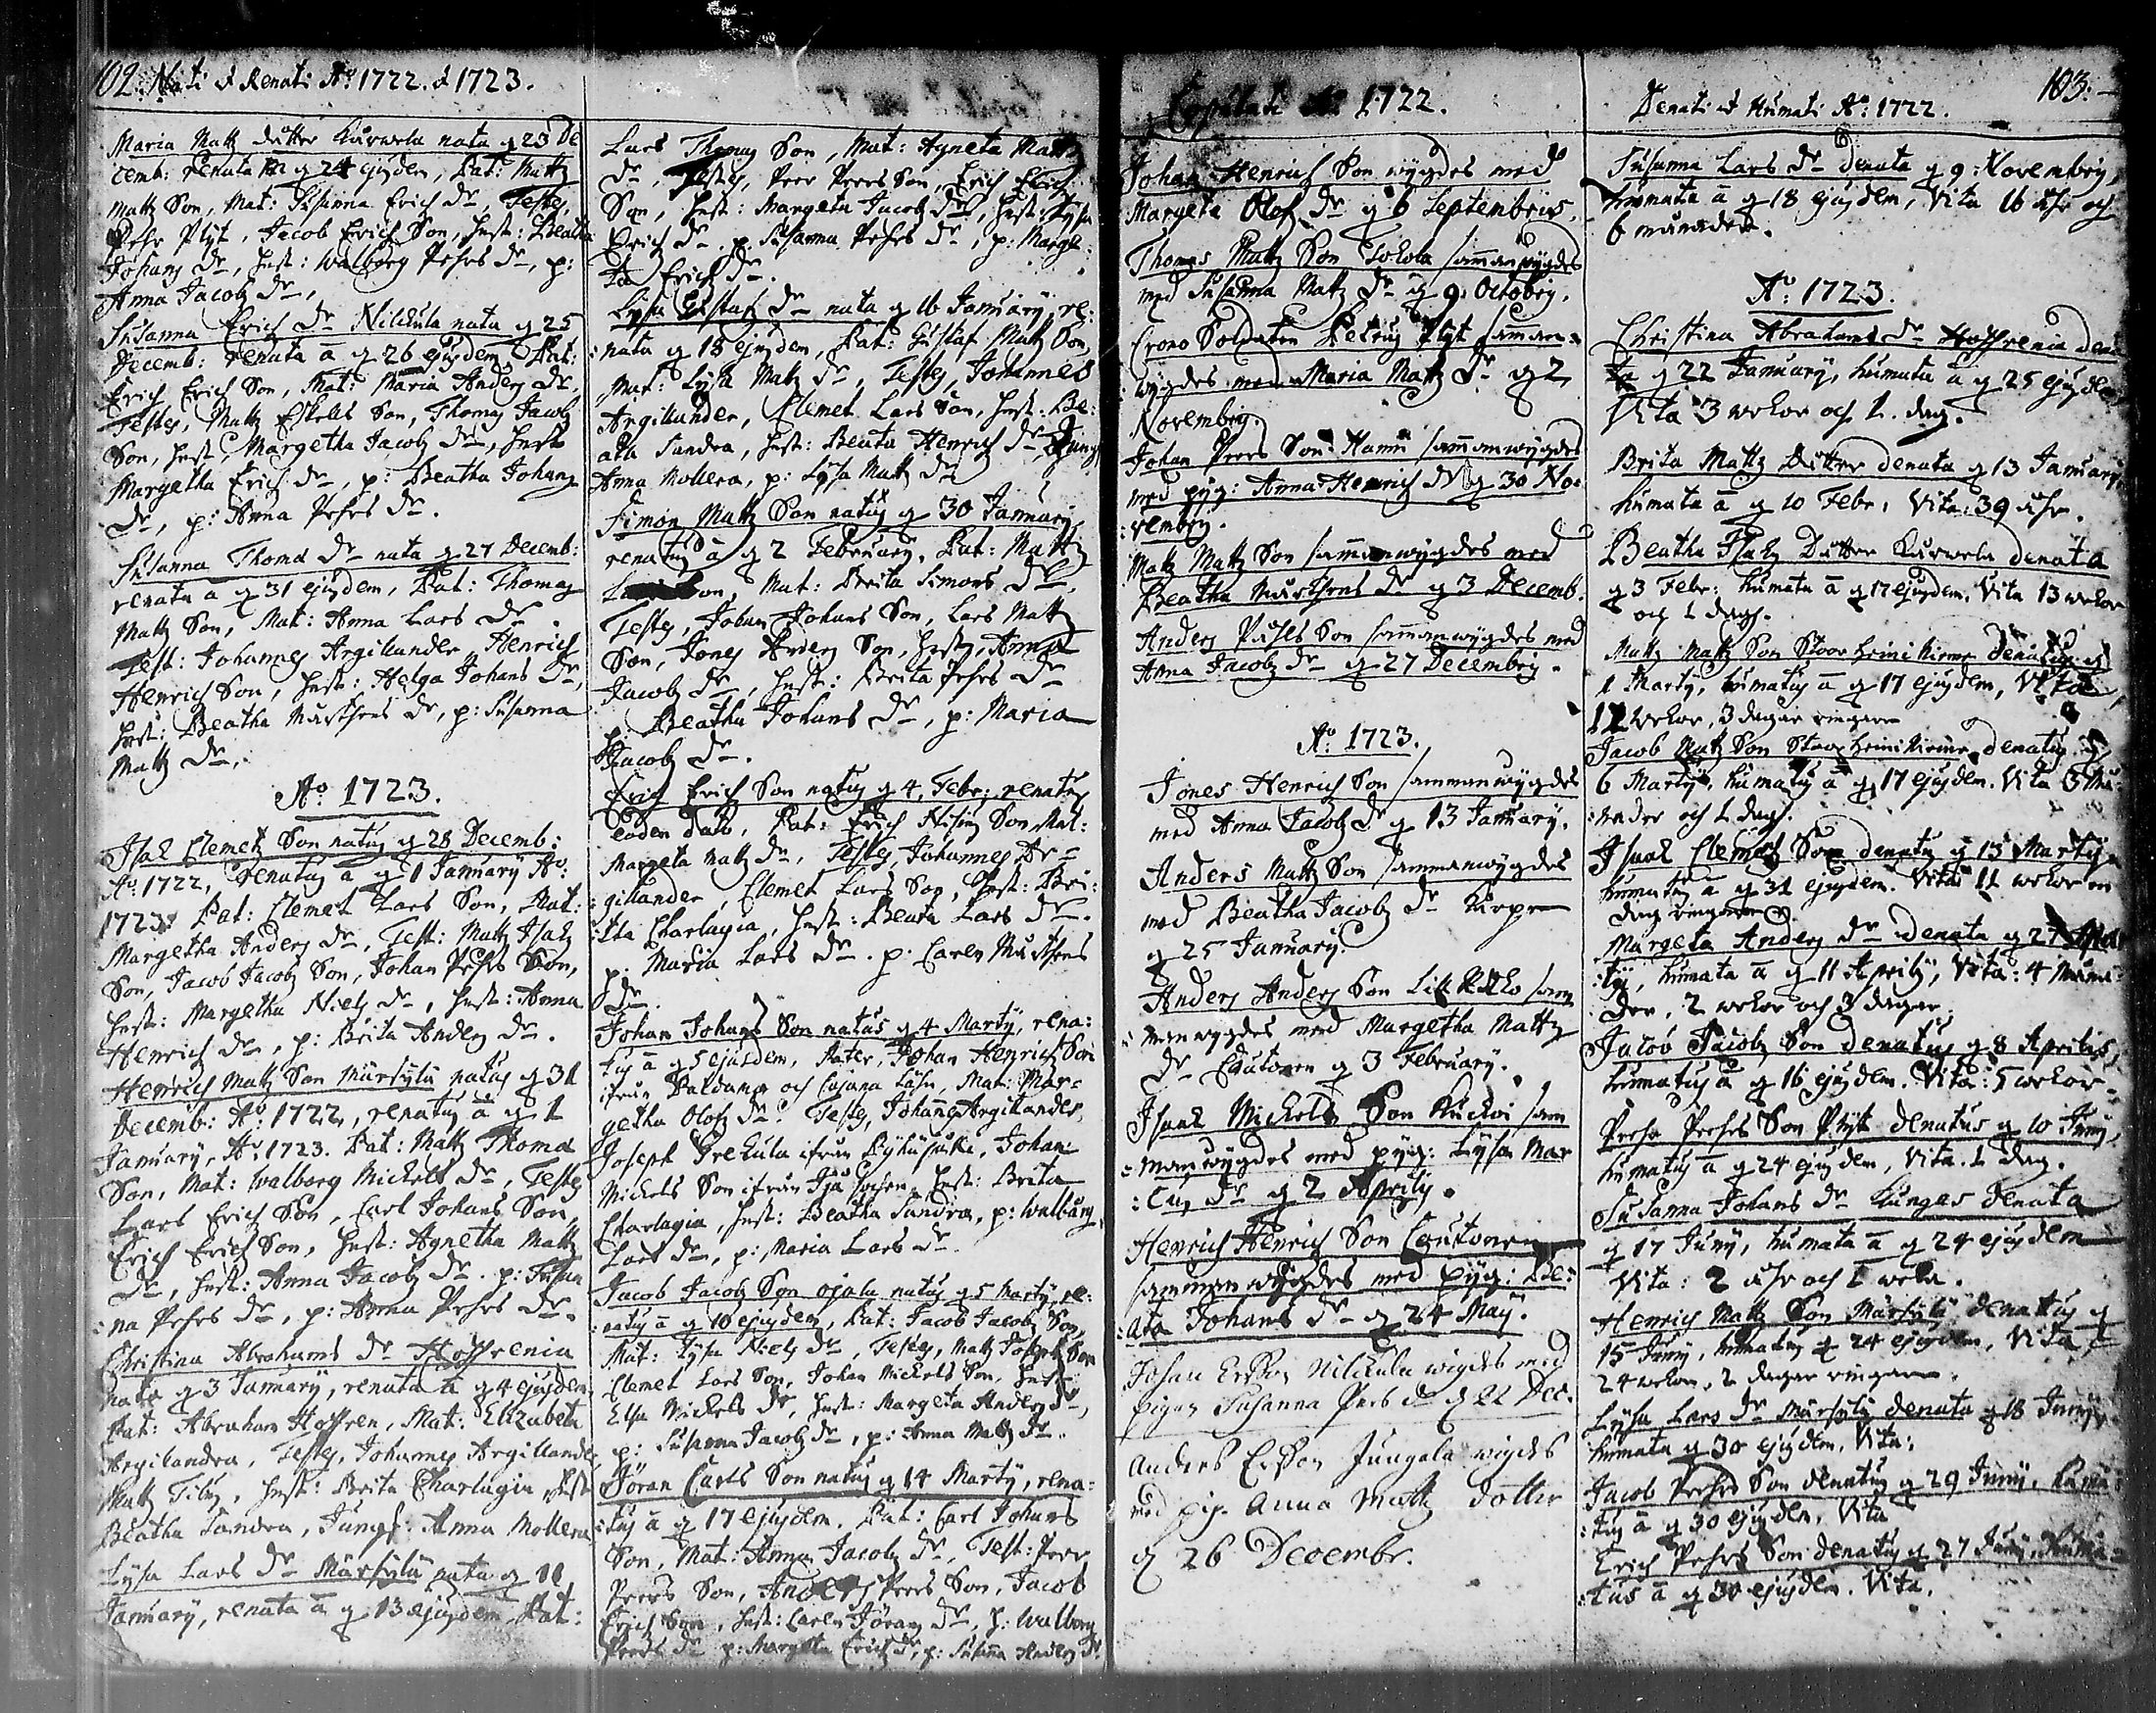 102. Nati & Renati Ao: 1722. & 1723.
Maria Mattz dåtter Kurwela nata q 23 De
cemb: renata q 24 ejusdem, Pat: Mattz
Mattz Son, Mat: Susanna Erich dr, Testes,
Pehr Plyt, Jacob Erich Son, hust: Beatha
Johans dr, hust: Walborg Pehrs dr, p:
Anna Jacobz dr,
Susanna Erich dr Nilckula nata q 25
Decemb: renata ā q 26 ejusdem Pat:
Erich Erich Son, Mat: Maria Anders dr,
Testes, Mattz Eskells Son, Thomas Jacobz
Son, hust, Margetha Jacobz dr, hust
Margetha Erich dr, p: Beatha Johans
dr, p: Anna Pehrs dr.
Susanna Thoma dr nata q 27 Decemb:
renata ā q 31 ejusdem, Pat: Thomas
Mattz Son, Mat: Anna Lars dr.
Test: Johannes Argillander, Henrich
Henrich Son, hust: Helga Johans dr,
hust: Beatha Mårthens dr, p: Susanna
Mattz dr,
Ao 1723.
Isak Clemetz Son natus q 28 Decemb:
Ao: 1722, renatus ā q 1 January Ao:
1723. Pat: Clemet Lars Son, Mat:
Margetha Anders dr, Test: Mattz Isakz
Son, Jacob Jacobz Son, Johan Pehrs Son,
hust: Margetha Niels dr, hust: Anna
Henrich dr, p: Brita Anders dr.
Henrich Mattz Son Mursylä natus q 31
Decemb: Ao: 1722, renatus ā q 1
January, Ao: 1723. Pat: Mattz Thoma
Son, Mat: Walborg Michels dr, Testes
Lars Erich Son, Carl Johans Son,
Erich Erich Son, hust: Agnetha Mattz
dr, hust: Anna Jacobz dr. p: Susan
:na Pehrs dr, p: Anna Pehrs dr.
Christina Abrahams dr Hoffrenia
nata q 3 January, renata ā q 4 ejusdem,
Pat: Abraham Hoffren, Mat: Elizabeta
Argilandra, Testes, Johannes Argillande
Mattz Tiliz, hust: Brita Charlagia, hust
Beatha Sandra, Jungf: Anna Mollera
Lysa Lars dr Mursylä nata q 11
January, renata ā q 13 ejusdem, Pat:
Lars Thomas Son, Mat: Agneta Mattz
dr, Testes, Peer Peers Son, Erich Erich
Son, hust: Margeta Jacobz dr, hust: Lysa
Erich dr. p. Susanna Pehrs dr, p: Marge:
ta Erich dr.
Lysa Gustaf dr nata q 16 January, re:
:nata q 18 ejusdem, Pat: Gustaf Mattz Son,
Mat: Lysa Mattz dr, Testes, Johannes
Argillander, Clemet Lars Son, hust: Be:
ata Sandra, hust: Beata Henrich dr, Jungf
Anna Mollera, p: Lysa Mattz dr
Simon Mattz Son natus q 30 January
renatus ā q 2 February. Pat: Mattz
Son, Mat: Brita Simons dr,
Testes, Johan Johans Son, Lars Mattz
Son, Jones Anders Son, hust, Anna
Jacobz dr, hust: Brita Pehrs dr
p: Beatha Johans dr, p: Maria
Jacobz dr.
Erich Erich Son natus q 4. Febr: renatus
eodem dato, Pat: Erich Son, Mat:
Margeta Mattz dr, Testes, Johannes Ar=
:gillander, Clemet Lars Son, hust: Bri:
:ta Charlagia, hust: Beata Lars dr.
p. Maria Lars dr. p: Caren Mårthens
dr.
Johan Johans Son natus q 4 Marty, rena:
tus ā q 5 ejusdem, Pater, Johan Henrich Son
ifrån Paldamo och Cajana Lähn, Mat: Mar=
getha Olofz dr. Testes, Johannes Argilander,
Joseph Trekula ifrån Pyhäjoki, Johan
Michels Son ifrån Ijå Sochen, hust: Brita
Charlagia, hust: Beatha Sandra, p: Walborg
Lars dr, p: Maria Lars dr.
Jacob Jacobz Son Ojala natus q 5 Marty re:
:natus ā q 10 ejusdem, Pat: Jacob Jacobz Son,
Mat: Lysa Niels dr, Testes, Mattz Joseph Son
Clemet Lars Son, Johan Michels Son, hust
Elsa Michels dr, hust: Margeta Anders dr,
p: Susanna Jacobz dr, p: Anna Mattz dr.
Jöran Carls Son natus q 14 Marty, rena=
:tus ā q 17 ejusdem. Pat: Carl Johans
Son, Mat: Anna Jacobz dr, Test: Peer
Peers Son, Anders Peers Son, Jacob
Erich Son, hust: Caren Jörans dr, p: Walborg
Peers dr p: Margeta Erich dr, p: Susanna Anders dr.
Copulati Ao 1722.
Johan Henrich Son wygdes med
Margeta Olofz dr q 6 Septembris.
Thomas Mattz Son Tokola sammanwygdes
med Susanna Mattz dr q 9. Octobris.
Crono Soldaten Petrus Plyt samman=
wygdes med Maria Mattz dr q 2
Novembris.
Johan Peers Son Hanni sammanwygdes
med pyg: Anna Henrich dr q 30 No:
:vembris.
Mattz Mattz Son sammanwygdes med
Beatha Mårthens dr q 3 Decemb.
Anders Påhls Son sammanwygdes med
Anna Jacobz dr q 27 Decembris.
Ao: 1723.
Jones Henrich Son sammanwygdes
med Anna Jacobz dr q 13 January.
Anders Mattz Son sammanwygdes
med Beatha Jacobz dr Karpe
q 25 January.
Anders Anders Son sam
manwygdes med Margetha Mattz
dr Cautonen q 3 February.
Isaak Michels Son Kuckoi sam
=manwygdes med pyg: Lysa Mar
:cus dr q 2 Aprilis.
Henrich Henrich Son Cautonen
sammanwygdes med pyg: Be:
:ata Johans dr q 24 May.
Johan Ersson Nilckula wigdes med
pigan Susanna Pers dr d 22 Dec.
Anders Ersson Jungala wigdes
med pig. Anna Mattz dotter
q 26 Decembr.
Denati & Humati Ao: 1722.
103.
Susanna Lars dr denata q 9: Novembris,
humata ā q 18 ejusdem, Vita 16 åhr och
6 månader.
Ao: 1723.
Christina Abrahams dr Hoffrenia dena
ta q 22 January, humata ā q 25 ejusdem,
Vita 3 wekor och 1. dag.
Brita Mattz dåtter denata q 13 January,
humata ā q 10 Febr, Vita: 39 åhr.
Beatha Isakz Dåtter Kurwela denata
q 3 Febr: humata ā q 17 ejusdem. Vita 13 wekor
och 1 dag.
Mattz Mattz Son Stoor heini niemi denatus q
1 Marty, humatus ā q 17 ejusdem, Vita,
12 wekor, 3 dagar ringare
Jacob Mattz Son Stoor heini niemi denatus q
6 Marty, humatus ā q 17 ejusdem. Vita 3 må:
:nader och 1 dag.
Isaak Clemetz Son denatus q 13 Marty
humatus ā q 31 ejusdem. Vita 11 wekor en
dag ringare.
Margeta Anders dr denata q 27 Mar
:ty, humata ā q 11 Aprilis, Vita: 4 måna=
der, 2 wekor och 3 dagar.
Jacob Jacobz Son denatus q 8 Aprilis,
humatus ā q 16 ejusdem. Vita: 5 wekor.
Pehr Pehrs Son Plyt denatus q 10 Juny,
humatus ā q 24 ejusdem, Vita. 1 dag.
Susanna Johans dr Kungas denata
q 17 Juny, humata ā q 24 ejusdem
Vita: 2 åhr och 1 weka.
Henrich Mattz Son Mursylä denatus q
15 Juny, humatus q 24 ejusdem, Vita
24 wekor, 2 dagar ringare.
Lysa Lars dr Mursylä denata q 18 Juny,
humata q 30 ejusdem, Vita:
Jacob Pehrs Son denatus q 29 Juny, huma:
:tus ā q 30 ejusdem, Vita
Erich Pehrs Son denatus q 27 Juny, huma=
:tus ā q 30 ejusdem. Vita.